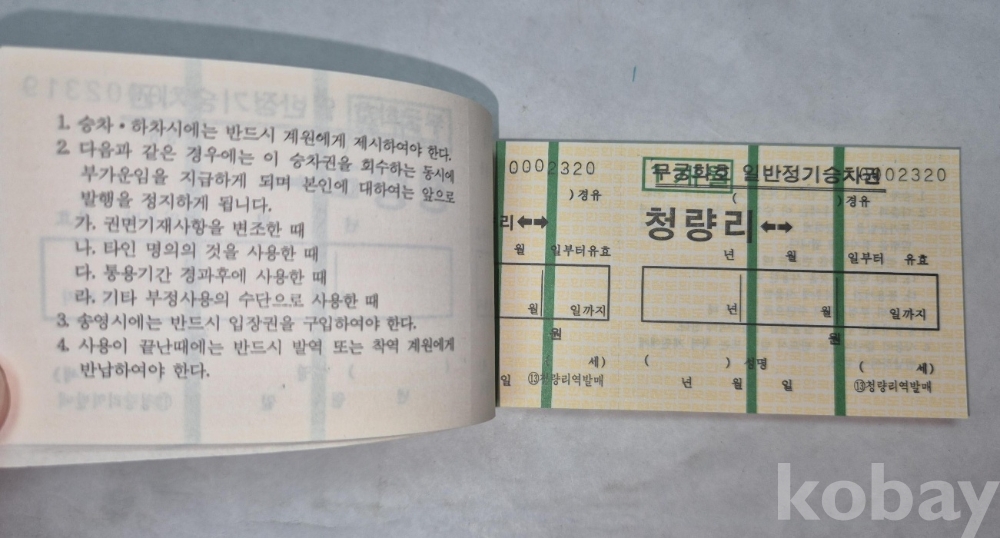 1. 승차·하차시에는 반드시 계원에게 제시하여야 한다.
2. 다음과 같은 경우에는 이 승차권을 회수하는 동시에
부가운임을 지급하게 되며 본인에 대하여는 앞으로
발행을 정지하게 됩니다.
가. 권면기재사항을 변조한 때
나. 타인 명의의 것을 사용한 때
다. 통용기간 경과후에 사용한 때
라. 기타 부정사용의 수단으로 사용한 때
3. 송영시에는 반드시 입장권을 구입하여야 한다.
4. 사용이 끝난때에는 반드시 발역 또는 착역 계원에게
반납하여야 한다.
0002320
)경유
리⬅➡
월 일부터유효
월 일까지
원
( 세)
일 ⑬청량리역발매
무궁화호 일반정기승차권 0002320
( )경유
청량리⬅➡
년 월 일부터 유효
년 월 일까지
원
( ) 성명 ( 세)
년 월 일 ⑬청량리역발매
kobay